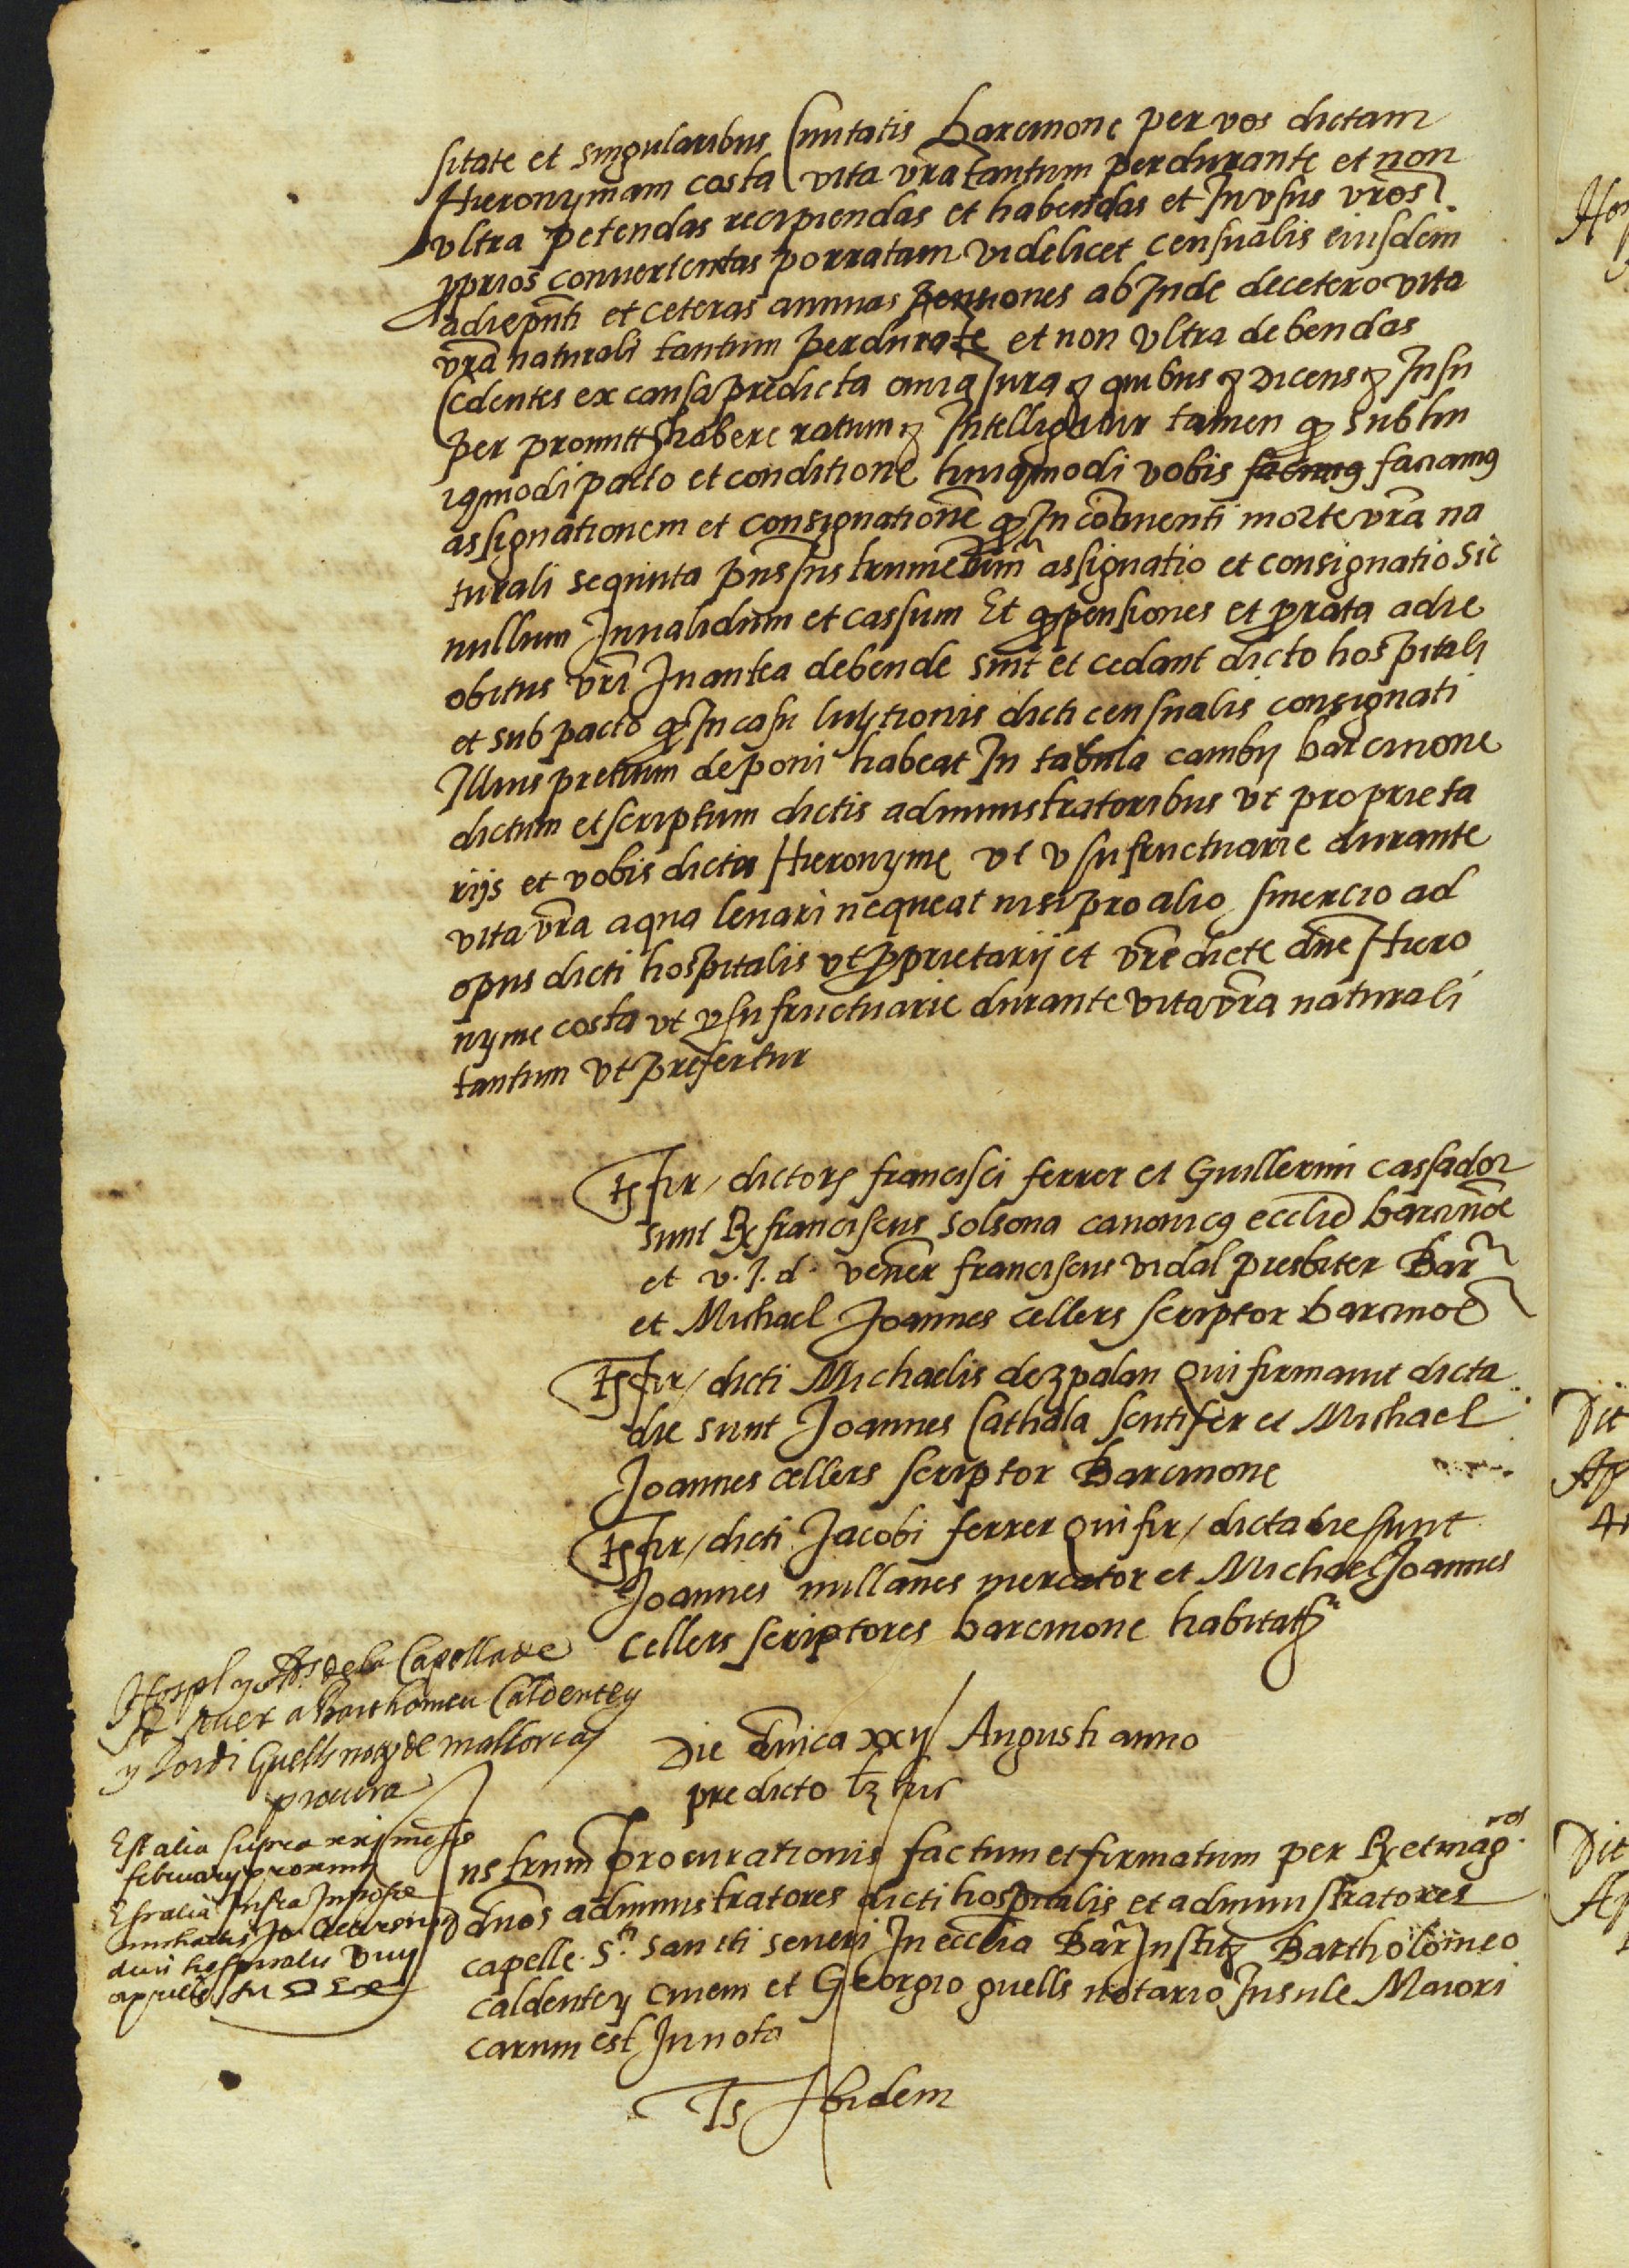 sitate et singularibus Civitatis barcinone per vos dictam
Hieronymam costa vita vra tantum perdurante et non
vltra petendas recipiendas et habendas et In vsus vros
pprios convertentas porratam videlicet censualis eiusdem
adiepnti et ceteras annuas pensiones ab Inde decetero vita
vra naturali tantum perdurate et non vltra debendas
Cedentes ex causa predicta omia Iura quibus dicens Insu
per promitt habere ratum Intelligatur tamen q sub hu
iqmodi pacto et conditione huiqmodi vobis facimus faciamq
assignationem et consignatione q Incontinenti morte vra na
turali sequuta pns Instrumetum assignatio et consignatio sit
nullum Invalidum et cassum Et q pensiones et prata adie
obitus vri In antea debende sint et cedant dicto hospitali
et sub pacto q In casu luitionis dicti censualis consignati
Illius pretium deponi habeat In tabula cambij barcinone
dictum et scriptum dictis administratoribus vt proprieta
rijs et vobis dicta Hieronyme vt vsufructuarie durante
vita vra a qua levari nequeat nisi pro alio smercio ad
opus dicti hospitalis vt pprietarij et vre dicte dne Hiero
nyme costa vt vsufructuarie durante vita vra naturali
tantum vt prefertur
Ts fir/ dictorz francisci ferrer et Guillermi cassador
sunt Rx franciscus solsona canonicq ecclie barcinoe
et v. J. d. vener franciscus vidal presbiter Bar
et Michael Joannes cellers scriptor barcinoe
Ts fir/ dicti Michaelis dezpalau qui firmavit dicta
die sunt Joannes Cathala scutifer et Michael
Joannes cellers scriptor Barcinone
Ts fir/ dicti Jacobi ferrer qui fir/ dicta die sunt
Joannes millanes mercator et Michael Joannes
Cellers scriptores barcinone habitat
Hospl y Ads de la Capella de
St sever a Barthomeu Caldentey
y Jordi Guells noy de mallorca
procura
Die dnica xxij Augusti anno
predicto
Est alia supra xxj mesis
february proximi
Est alia Infra In posse
michaelis Jo
hospitalis
aprilis
Instrum Procurationis factum et firmatum per Rx et magcos
dnos administratores dicti hospitalis et administratores
capelle sti sancti severi In ecclia Bar Instit Bartholomeo
caldentey civem et Georgio guells notario Insule Maiori
carum est In nota
Ts Ibidem